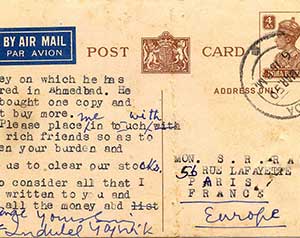 BY AIR MAIL
PAR AVION
POST CARD
4 As
ADDRESS ON
ey on which he has
red in Ahmedbad. He
bought one copy and
t buy more. me with
Please place/in to uch/with
rich friends so as to
en your burden and
us to clear our stocks.
o consider all that I
written to you and
all the money abd list
Indulal Yajnik
MON. S. R. RA
56 RUE LAFAYETTE
PARIS
FRANCE
Europe